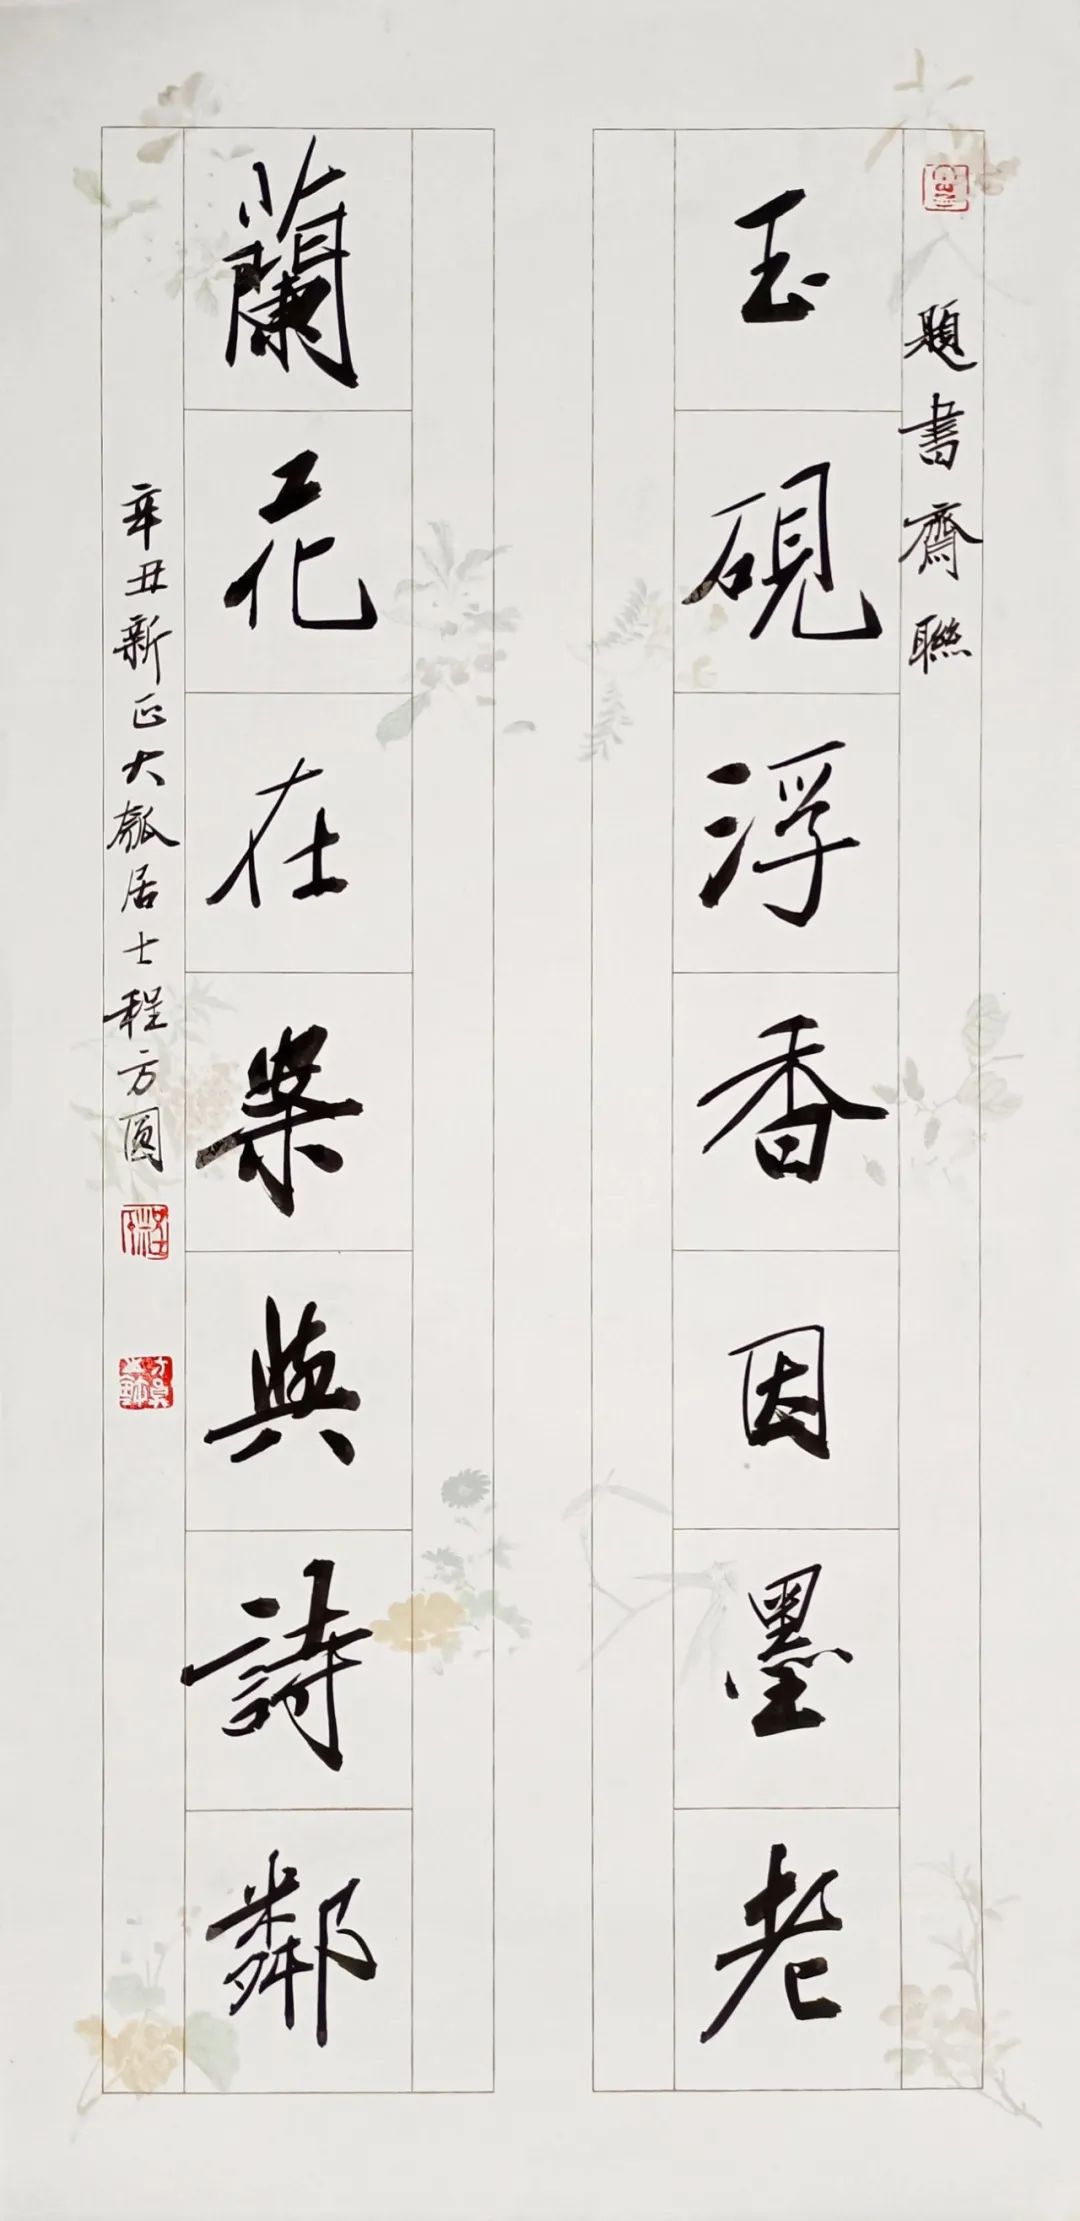 題書齋聯
玉硯浮香因墨老
蘭花在案與詩鄰
辛丑新正大瓠居士程方圓